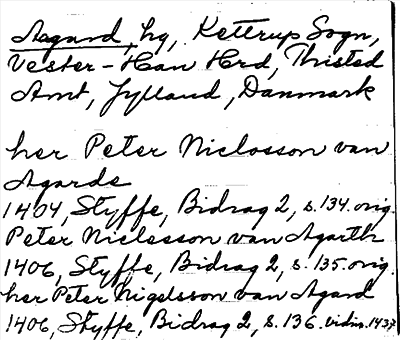 Aagard, by, Kettrup Sogn,
Vester-Han Hrd, Thisted
Amt, Jylland, Danmark
her Peter Niclosson van
Agarde
1404, Styffe, Bidrag 2, s. 134. orig.
Peter Niclesson van Agarth
1406, Styffe, Bidrag 2, s. 135. orig.
her Peter Nigelsson van Agard
1406, Styffe, Bidrag 2, s. 136. vidim. 1437